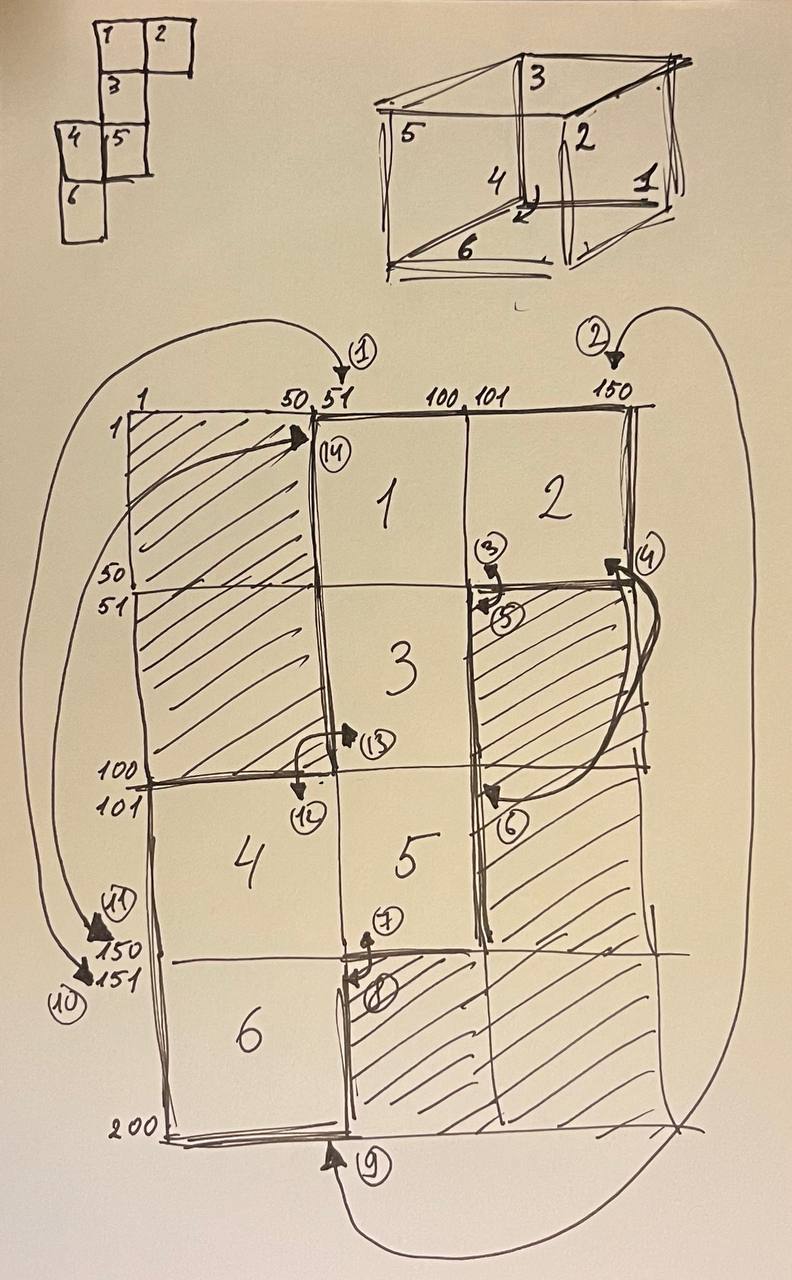 1 2
3
4 5
6
3
5 2
4 1
6
① ②
1 50 51 100 101 150
1
⑭
1 2
③ ④
50
51 ⑤
3
⑬
100
101 ⑫ ⑥
4 5
⑪ ⑦
150
151 ⑧
⑩
6
200
⑨